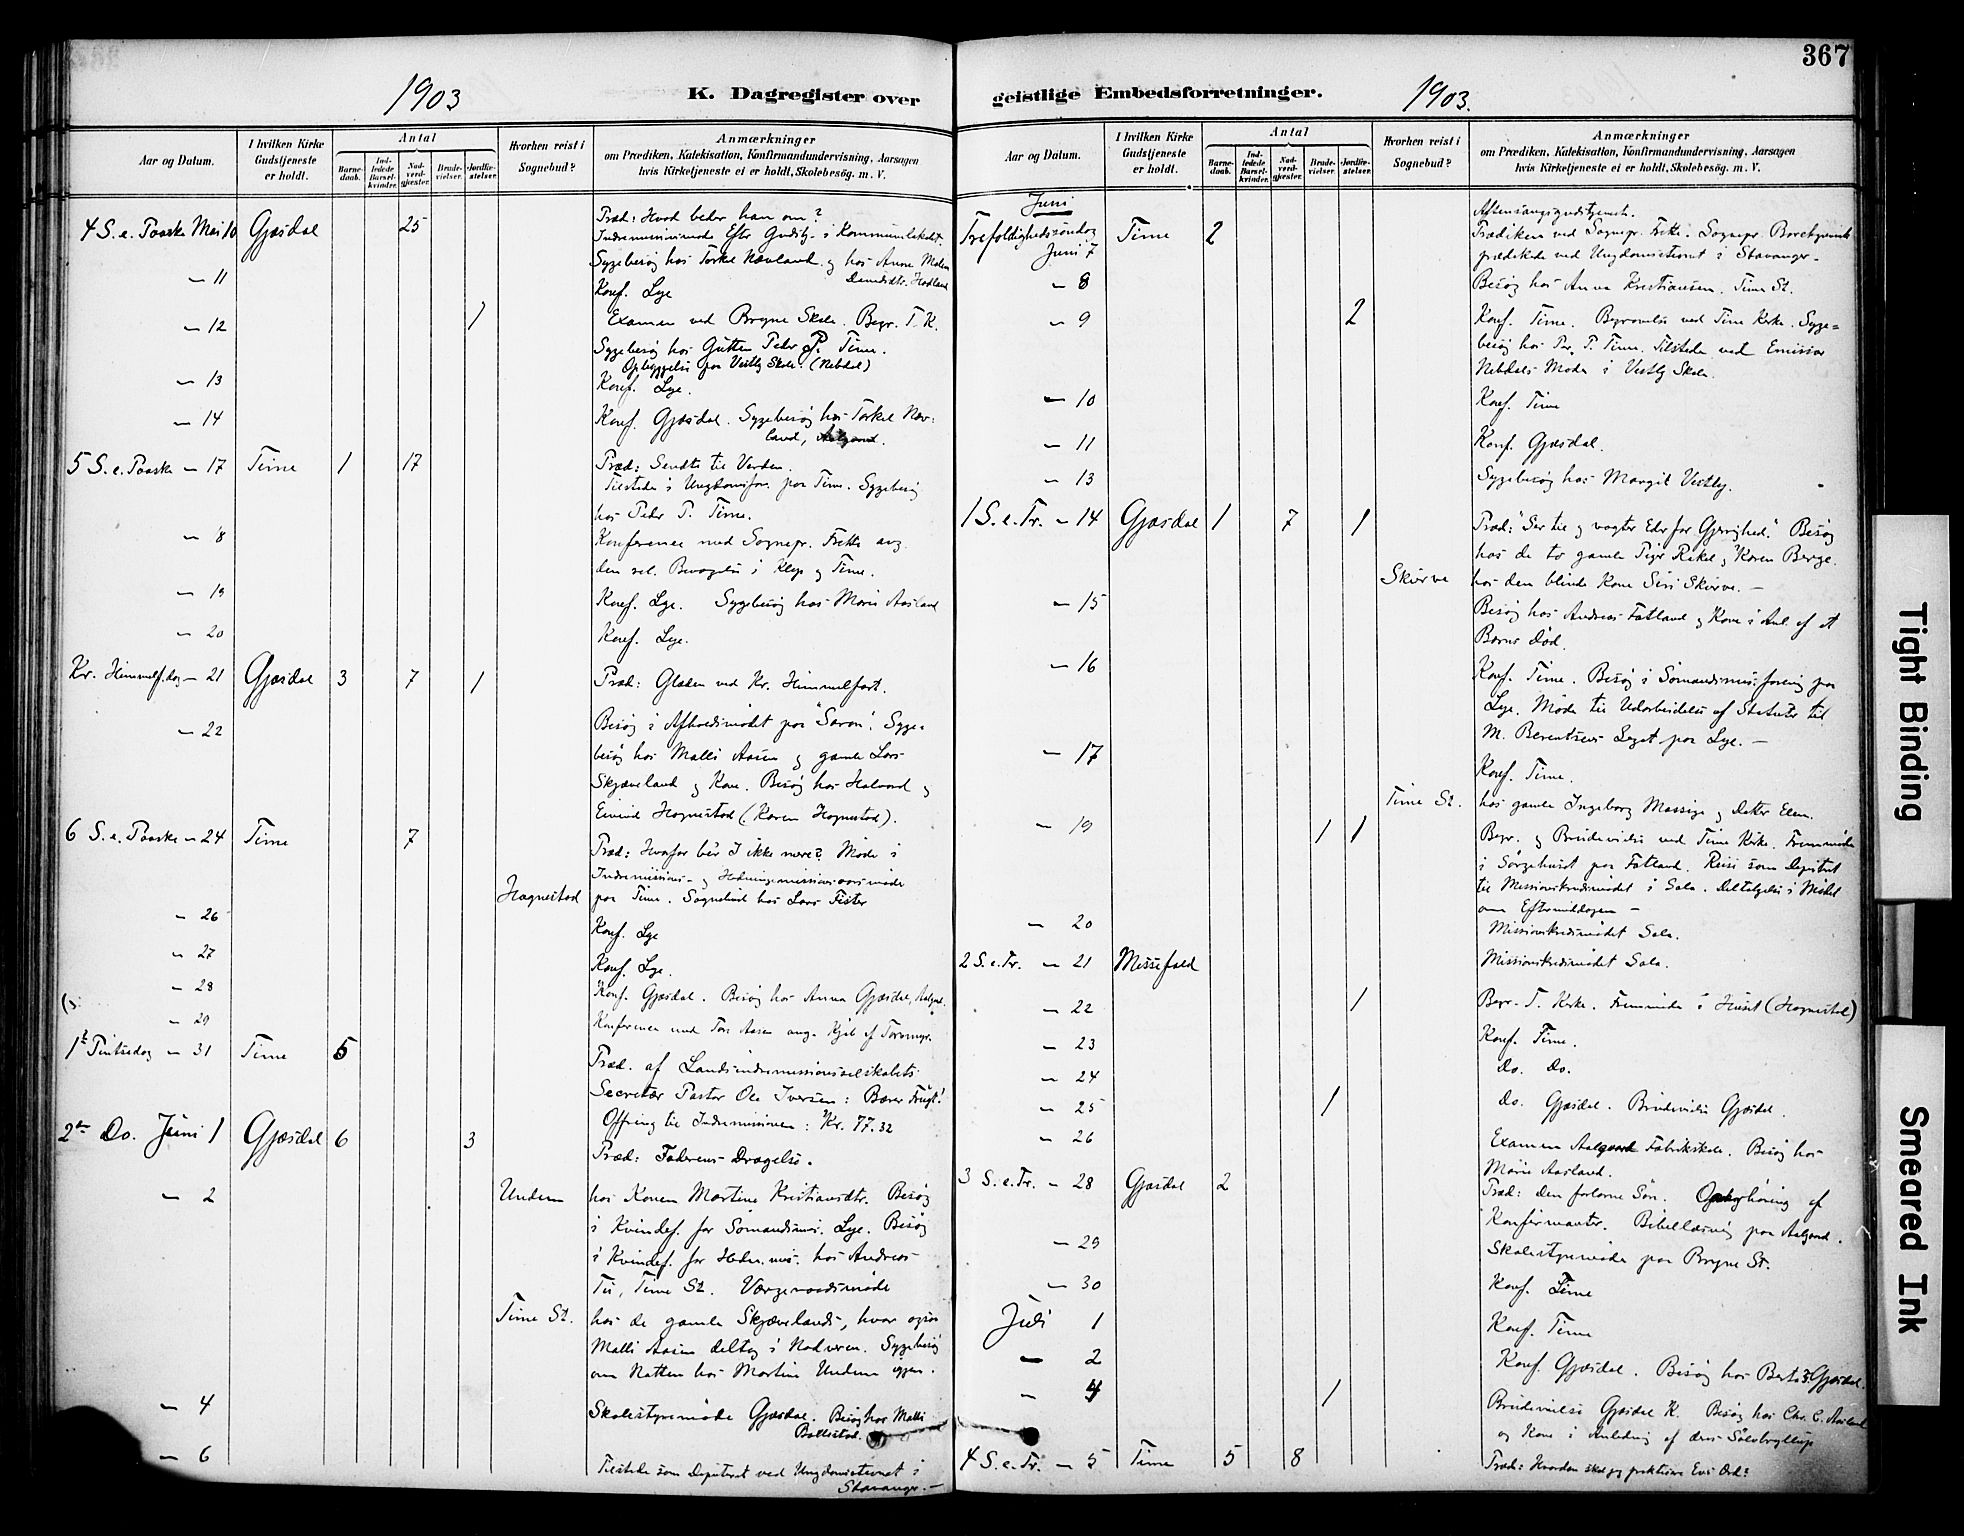 367
1903
K. Dagregister over
Aar og Datum.
I hvilken Kirke Gudstjeneste er holdt.
Antal
Barnedaab.
Indledede Barselkvinder.
Nadverdgjæster.
Brudevielser.
Jordfæstelser.
Hvorhen reist i Sognebud?
Anmærkninger
om Prædiken, Katekisation, Konfirmandundervisning, Aarsagen
hvis Kirketjeneste ei er holdt, Skolebesøg. m. V.
4 S. e. Paaske Mai 10 Gjæsdal 25 Præd: Hvad beder han om?
Indremissionsmøde efter Gudstj. i Kommunelokalet.
Sygebesøg hos Torkel Nævland og hos Anne Malene
— 11 Konf. Lye
— 12 1 Examen ved Bryne Skole. Begr. T. K.
Sygebesøg hos Gutten Peder P. Time.
Opbyggelse paa Vestly Skole. (Nebdal)
— 13 Konf. Lye.
— 14 Konf. Gjæsdal. Sygebesøg hos Torkel Næv-
land, Aalgaard.
5 S. e. Paaske — 17 Time 1 17 Præd: Sendte til Verden.
Tilstede i Ungdomsfor. paa Time. Sygebesøg
hos Peder P. Time.
— 18 Konference med Sognepr. Fette ang.
den rel. Bevægelse i Klep og Time.
— 19 Konf. Lye. Sygebesøg hos Marie Aasland
— 20 Konf. Lye.
Kr. Himmelf.dag — 21 Gjæsdal 3 7 1 Præd: Glæden ved Kr. Himmelfart.
— 22 Besøg i Afholdsmødet paa "Saron". Syge-
besøg hos Malli Aasen og gamle Lars
Skjæveland og Kone. Besøg hos Halvard og
Eivind Hognestad (Karen Hognestad).
6 S. e. Paaske — 24 Time 7 Præd: Hvorfor bør I ikke være? Møde i
Indremissions- og Hedningemissionsaarsmøde
Hognestad paa Time. Sognebud hos Lars Fister
— 26 Konf. Lye
— 27 Konf. Lye.
— 28 Konf. Gjæsdal. Besøg hos Anna Gjæsdal, Aalgaard.
— 29 Konference med Tore Aasen ang. Kjøb af Torvmyr.
1ste Pintsedag — 31 Time 5 Præd. af Landsindremissionsselskabets
Secretær Pastor Ole Iversen: Bærer Frugt!
Offring til Indremissionen: Kr. 77.32
2den Do. Juni 1 Gjæsdal 6 3 Præd: Faderens Dragelse.
— 2 Undem hos Konen Martine Kristiansdtr. Besøg
i Kvindef. for Sømandsmis. Lye. Besøg
i Kvindef. for Hedn. mis. hos Andreas
Tu, Time St. Værgeraadsmøde
Time St. hos de gamle Skjævelands, hvor ogsaa
Malli Aasen deltog i Nadveren. Sygebesøg
om Natten hos Martine Undem igjen.
— 4 Skolestyremøde Gjæsdal. Besøg hos Malli
— 6 Tilstede som Deputeret ved Ungdomsstevnet i
Stavanger. —
geistlige Embedsforretninger.
1903.
Aar og Datum.
I hvilken Kirke Gudstjeneste er holdt.
Antal
Barnedaab.
Indledede Barselkvinder.
Nadverdgjæster.
Brudevielser.
Jordfæstelser.
Hvorhen reist i Sognebud?
Anmærkninger
om Prædiken, Katekisation, Konfirmandundervisning, Aarsagen
hvis Kirketjeneste ei er holdt, Skolebesøg. m. V.
Juni
Aftensangsgudstjeneste.
Trefoldighedssøndag Juni 7 Time 2 Prædiken ved Sognepr. Fette. Sognepr. Borchgrevink
prædikede ved Ungdomsstevnet i Stavanger.
— 8 Besøg hos Anna Kristiansen. Time St.
— 9 2 Konf. Time. Begravelse ved Time Kirke. Syge-
besøg hos Per P. Time. Tilstede ved Emissær
Nebdals Møde i Vestly Skole.
— 10 Konf. Time
— 11 Konf. Gjæsdal.
— 13 Sygebesøg hos Margit Vestly.
1 S. e. Tr. — 14 Gjæsdal 1 7 1 Præd: "Ser til og vogter Eder for Gjerrighed." Besøg
hos de to gamle Piger Rikel og Karen Berge.
Skurve hos den blinde Kone Siri Skurve. —
— 15 Besøg hos Andreas Fotland og Kone i Anl. af et
Barns Død.
— 16 Konf. Time. Besøg i Sømandsmis. forening paa
Lye. Møde til Udarbeidelse af Statuter til
M. Berentsens Legat paa Lye. —
— 17 Konf. Time.
Time St. hos gamle Ingeborg Massige og Datter Elen.
— 19 1 1 Begr. og Brudevielse ved Time Kirke. Fremmøde
i Sørgehuset paa Fotland. Reise som Deputeret
til Missionskredsmødet i Sola. Deltagelse i Mødet
om Eftermiddagen —
— 20 Missionskredsmødet Sola.
2 S. e. Tr. — 21 Messefald Missionskredsmødet Sola.
— 22 1 Begr. T. Kirke. Fremmøde i Huset (Hognestad)
— 23 Konf. Time.
— 24 Do. Do.
— 25 1 do. Gjæsdal. Brudevielse Gjæsdal.
— 26 Examen Aalgaard Fabrikskole. Besøg hos
Marie Aasland.
3 S. e. Tr. — 28 Gjæsdal 2 Præd: den forlorne Søn. Overhøring af
Konfirmanter. Bibellæsning paa Aalgaard.
— 29 Skolestyremøde paa Bryne St.
— 30 Konf. Time
Juli 1 Konf. Time
— 2 Konf. Gjæsdal. Besøg hos Gjæsdal.
— 4 1 Brudevielse Gjæsdal K. Besøg hos Chr. C. Aasland
og Kone i Anledning af deres Sølvbryllup
4 S. e. Tr. — 5 Time 5 8 Præd: Hvordan skal jeg praktisere Guds Ord?
Tight Binding
Smeared Ink